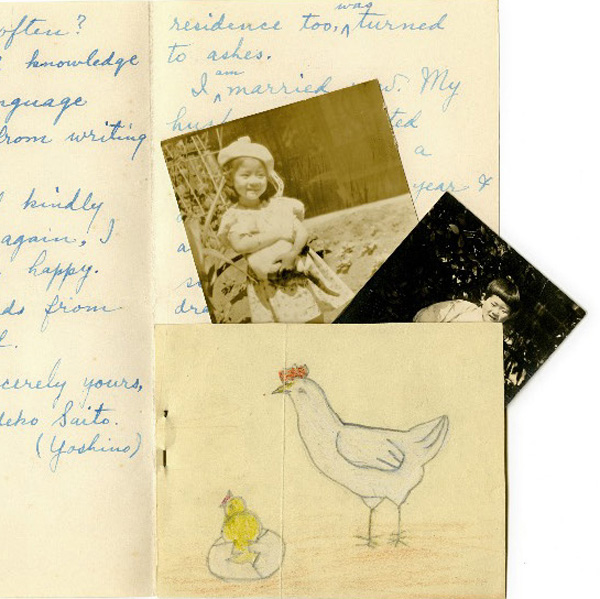 often?
knowledge
nguage
from writing
kindly
again, I
happy.
ds from
cerely yours,
deko Saito.
(Yoshino)
residence too, was turned
to ashes.
I am married now. My
hus ted
a
year &
a
dra